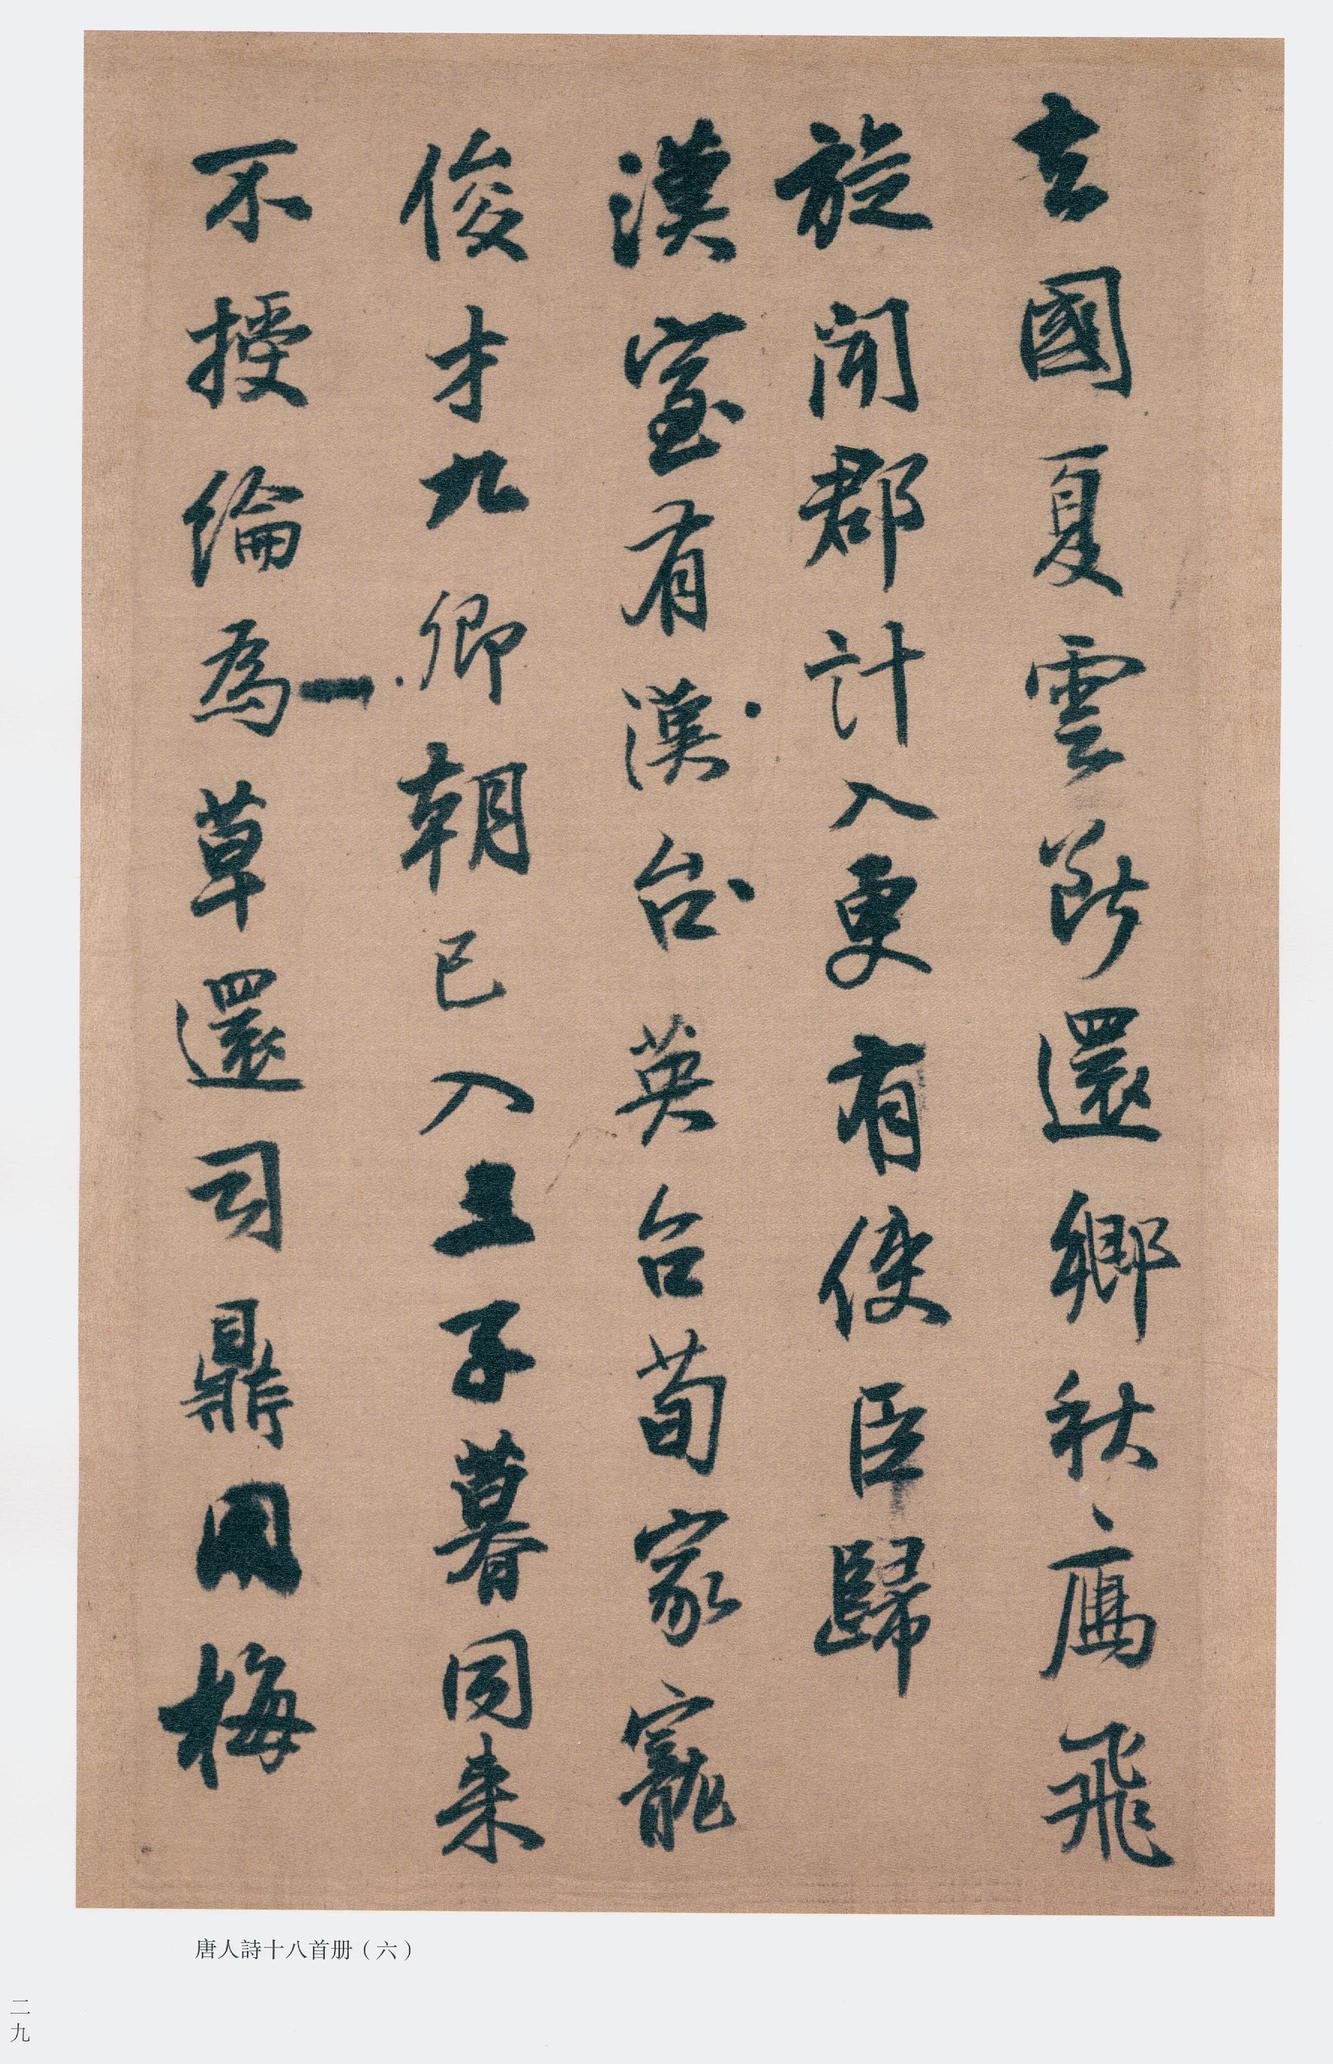 去國夏雲断還鄉秋鴈飛
旋聞郡計入更有使臣歸
漢室有漢台英台荀家寵
俊才九卿朝已入三子暮同来
不授綸為草還司鼎用梅
唐人詩十八首册（六）
二九